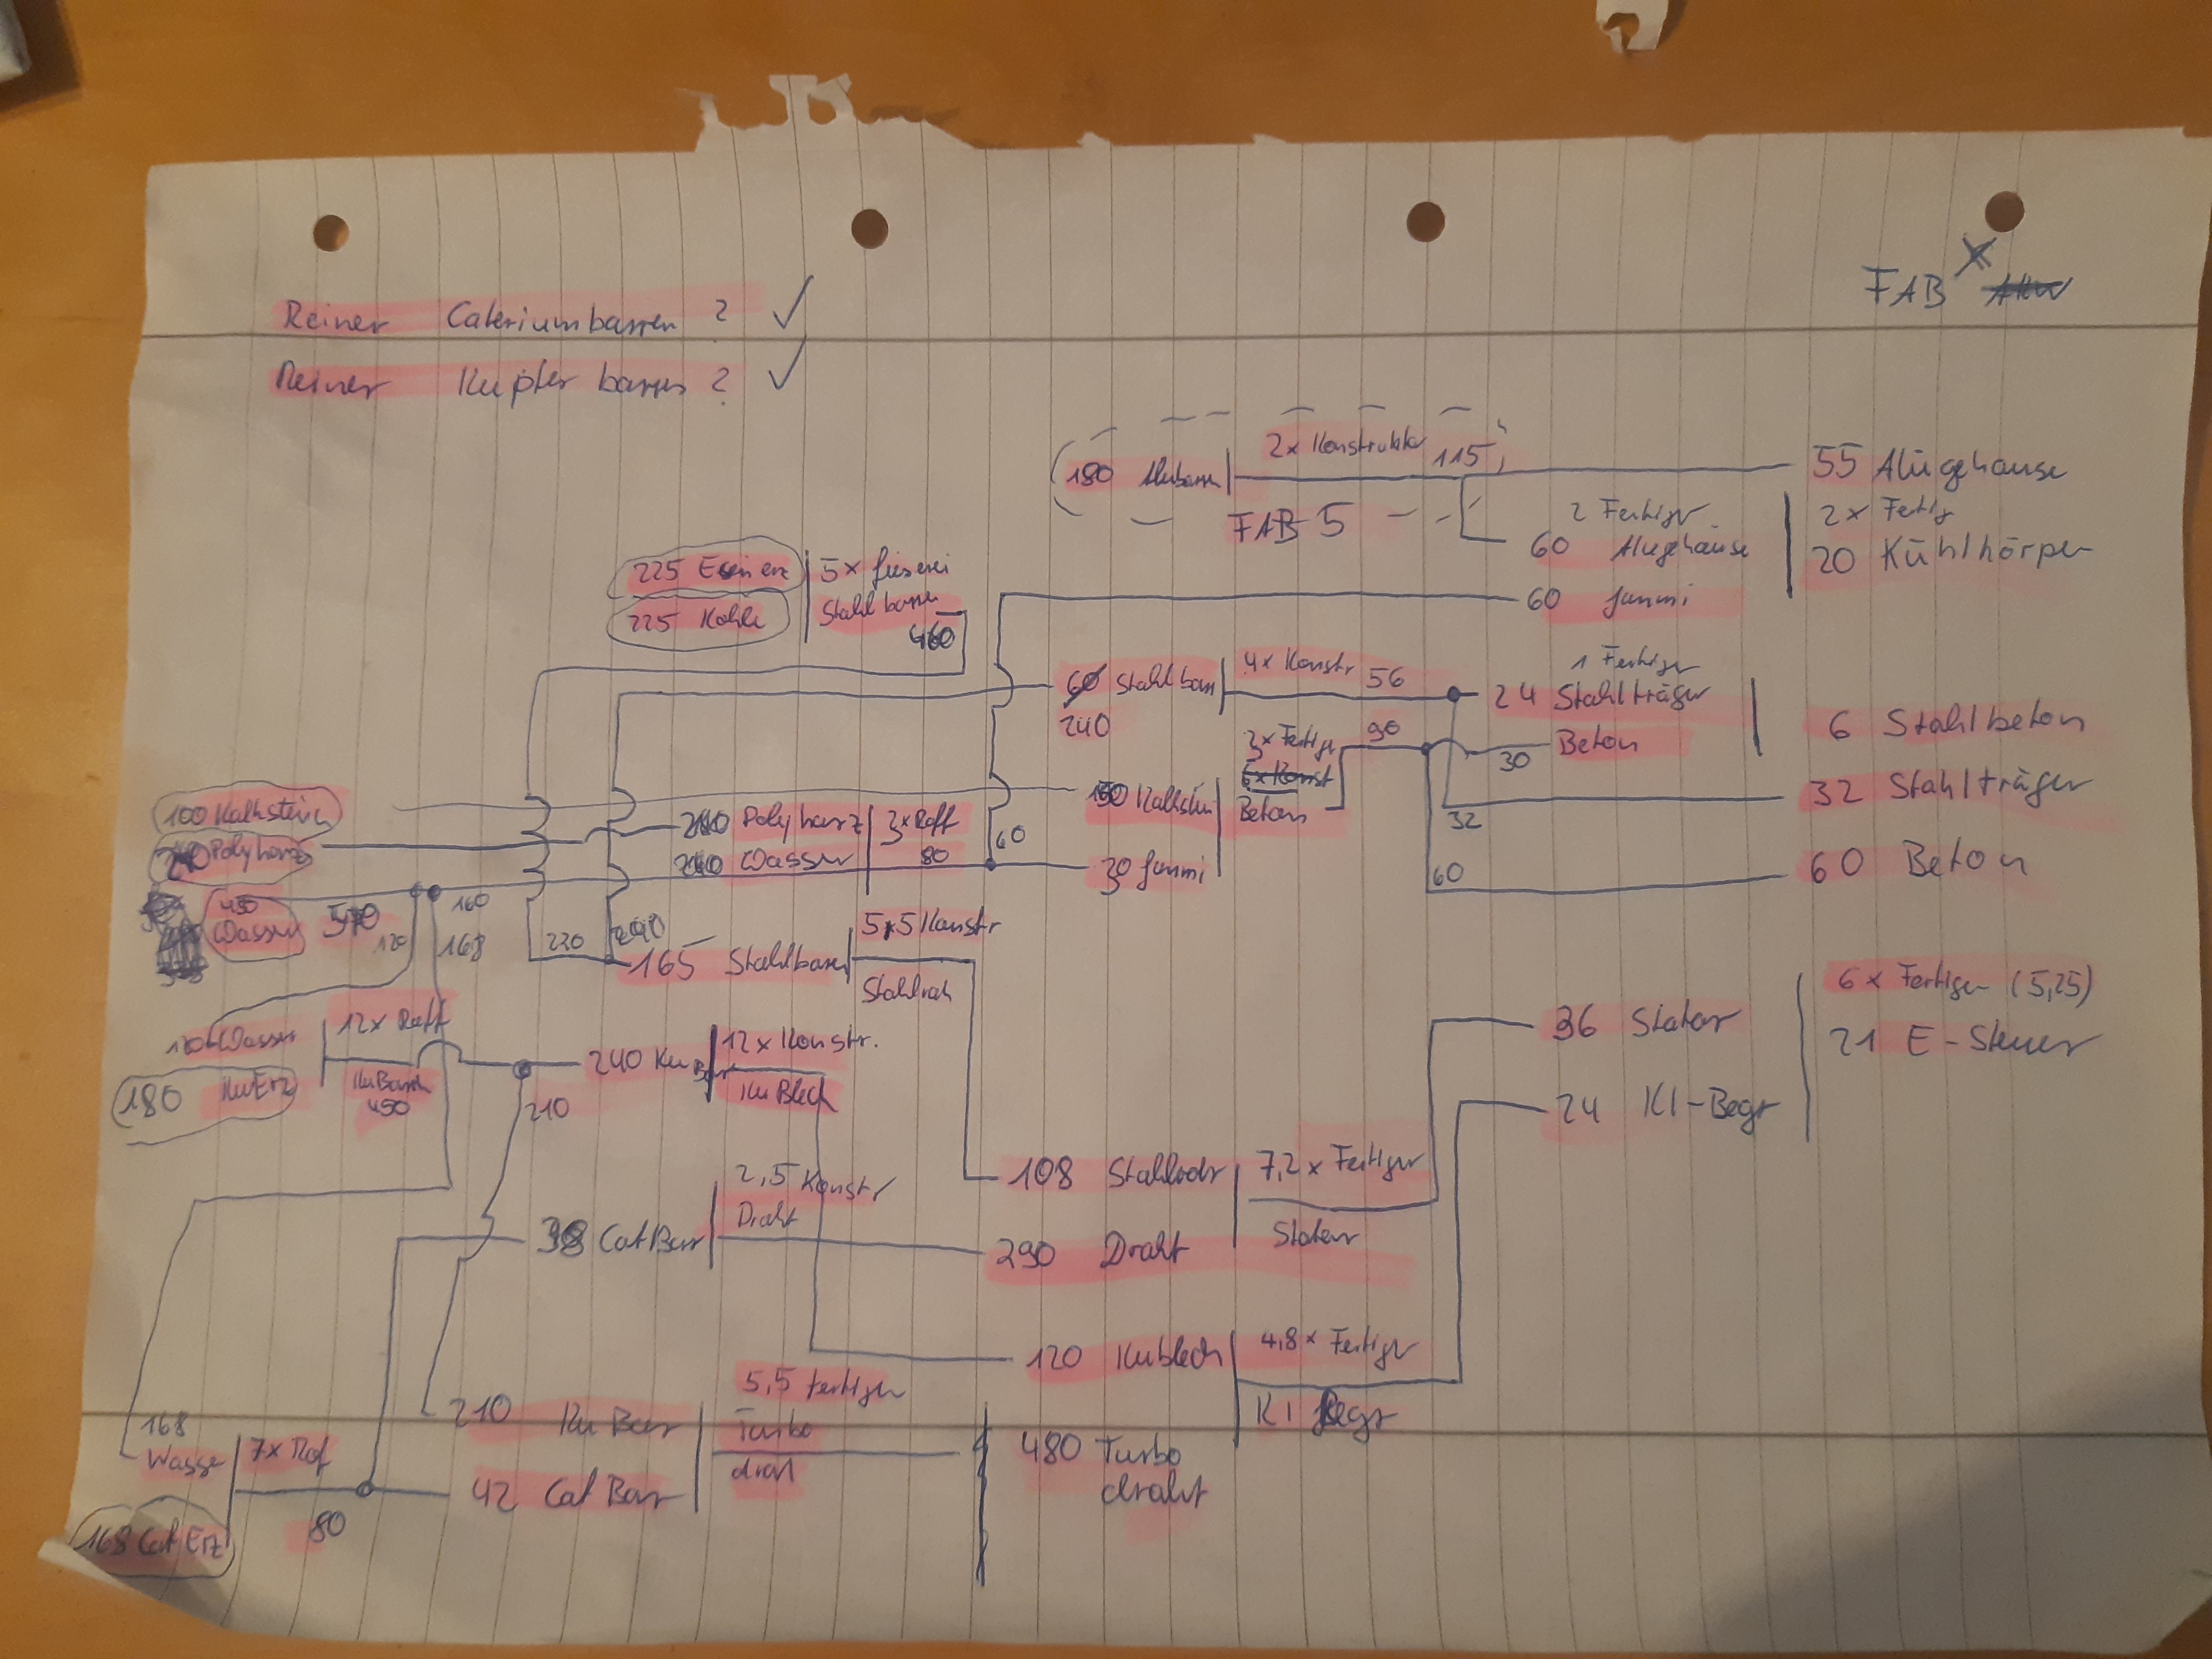 FAB
Reiner Cateriumbarren ? ✓
Reiner Kupferbarren ? ✓
180 Alubarren
2x Konstruktor
115
FAB 5
55 Alugehäuse
2 Fertiger
60 Alugehäuse
60 Gummi
2x Fertig
20 Kühlkörper
225 Eisenerz
225 Kohle
5x Gieserei
Stahlbarren
460
240
Stahlbarr
4x Konstr
56
1 Fertiger
24 Stahlträger
30
Beton
6 Stahlbeton
32
32 Stahlträger
60
60 Beton
100 Kalkstein
Polyharz
450
Wasser
120
160
168
Polyharz
Wasser
3x Raff
80
60
Kalkstein
30 Gummi
3x Fertiger
Beton
90
220
165 Stahlbarren
Konstr
Stahlroh
120 Wasser
180 KuErz
12x Raff
KuBarr
450
210
240 Ku Barr
12x Konstr.
KuBlech
38 CatBarr
2,5 Konstr
Draht
108 Stahlrohr
290 Draht
7,2x Fertiger
Stator
36 Stator
24 KI-Begr
6x Fertiger (5,25)
21 E-Steuer
120 Kublech
480 Turbo
draht
4,8x Fertiger
KI Begr
168
Wasser
168 Cat Erz
7x Raf
80
210 Ku Bar
42 Cat Bar
5,5 Fertiger
Turbo
draht